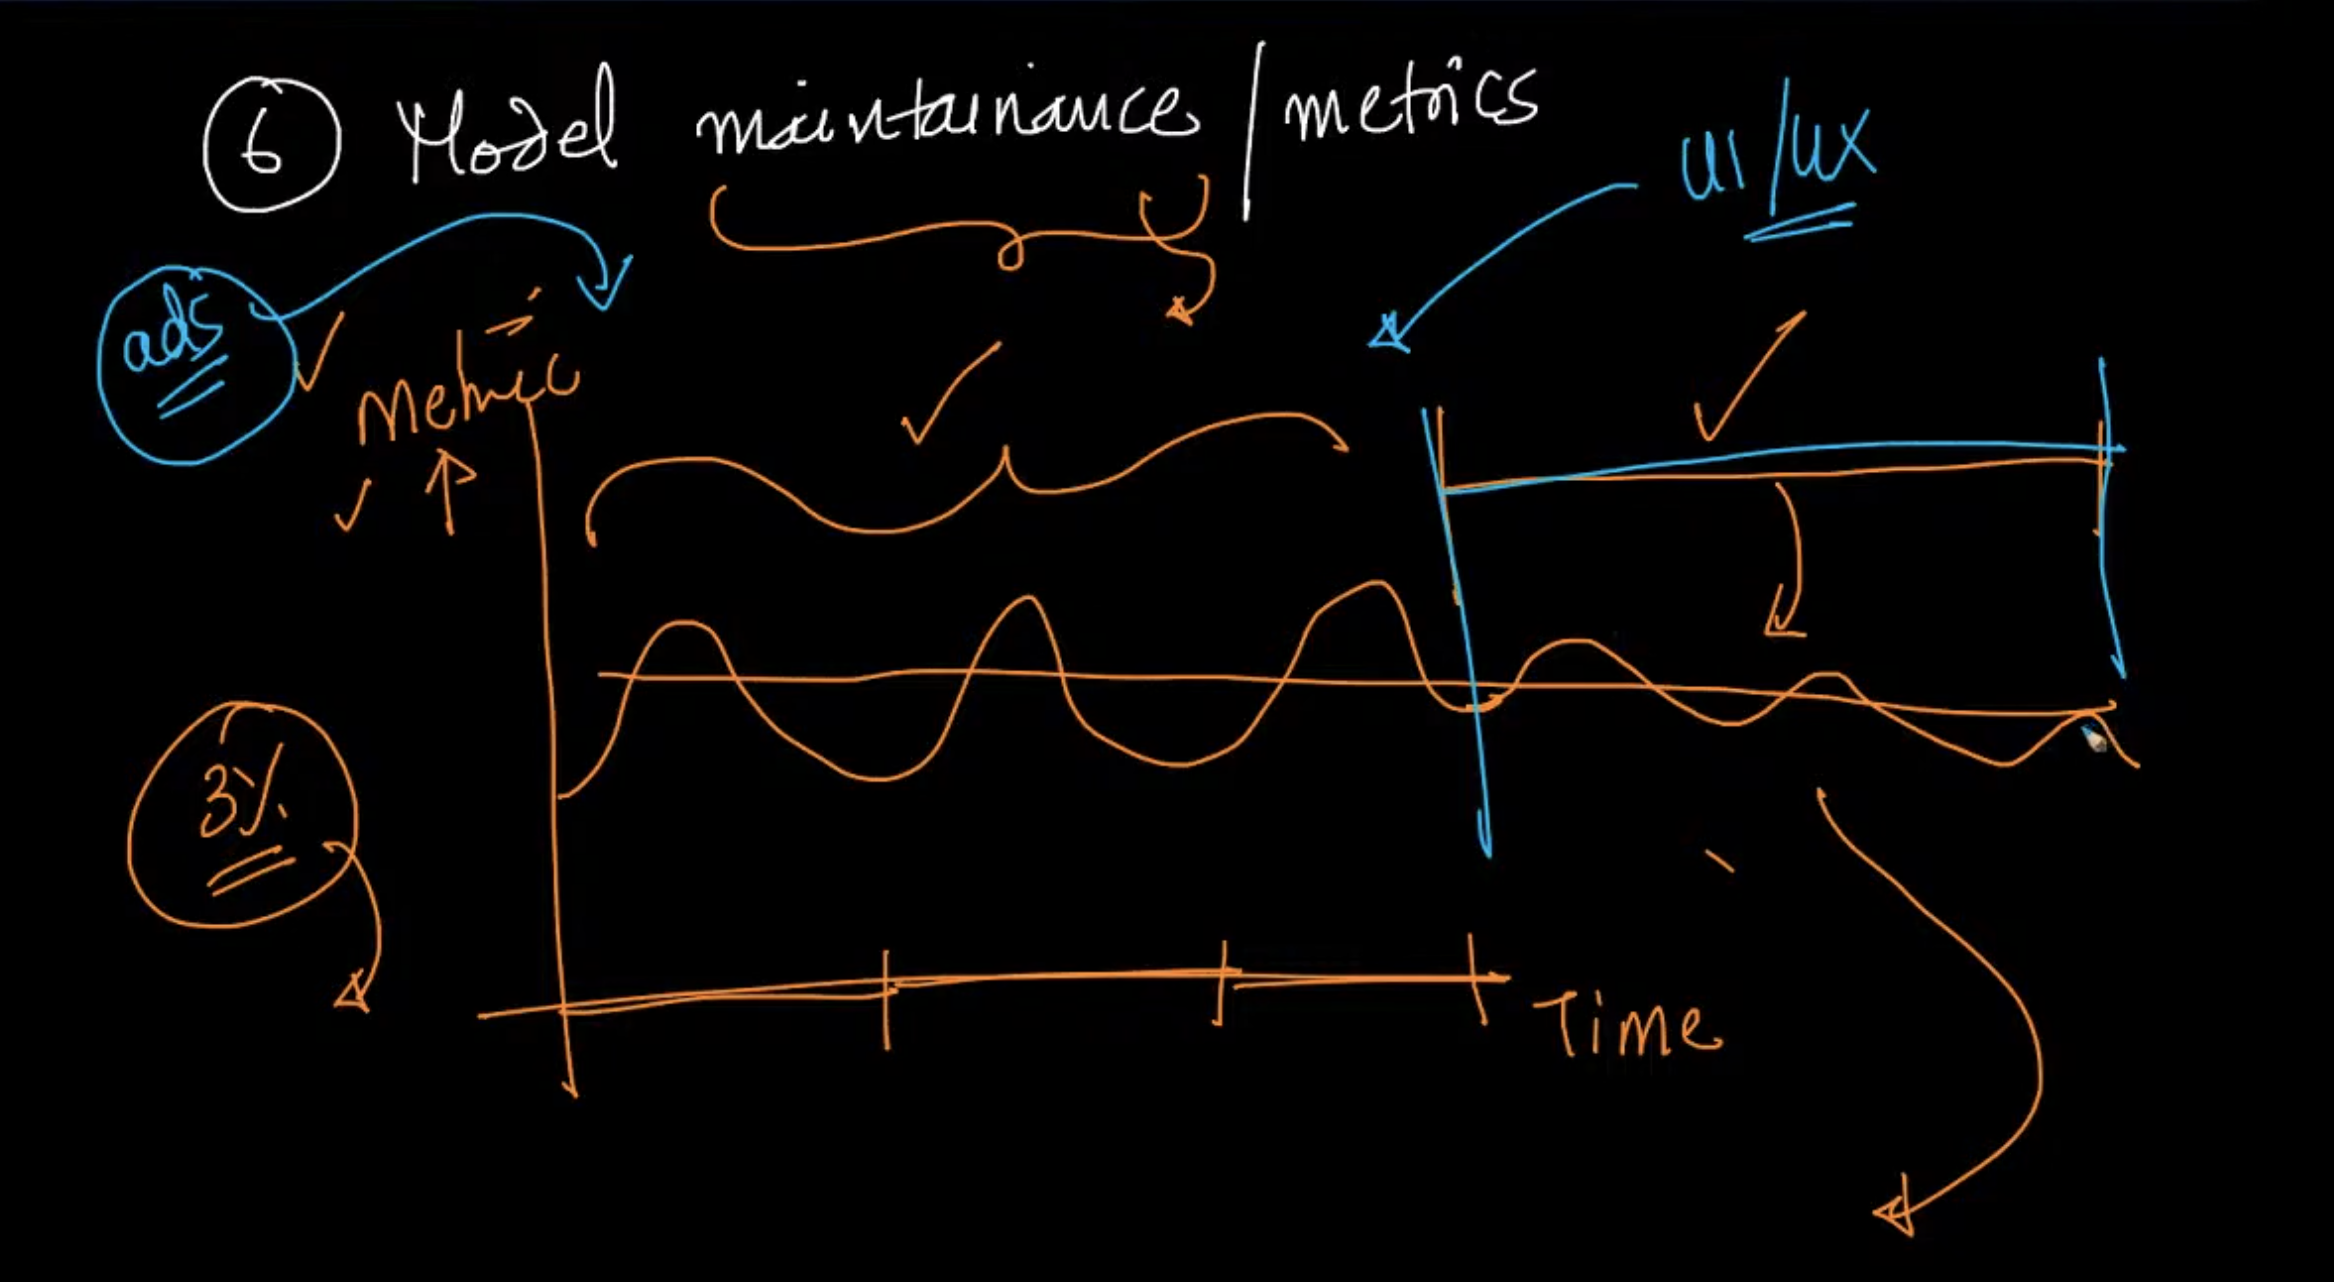 6 Model maintainance/metrics
UI/UX
ads
Metric
3%
Time